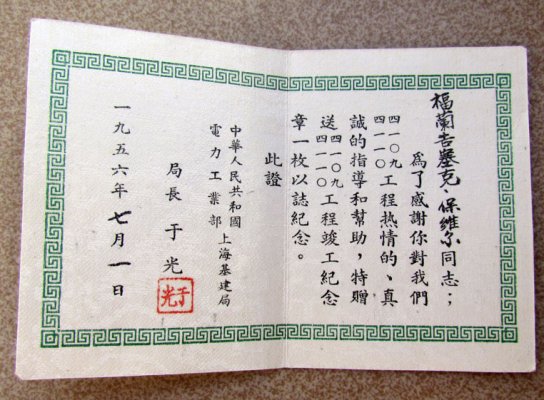 福蘭吉塞克、保維尔同志；
為了感謝你對我們
四一〇九
四一一〇工程热情的、真
誠的指導和幫助，特贈
送四一〇九
四一一〇工程竣工紀念
章一枚以誌紀念。
此證
中華人民共和國
電力工業部上海基建局
局長于光
于光
一九五六年七月一日